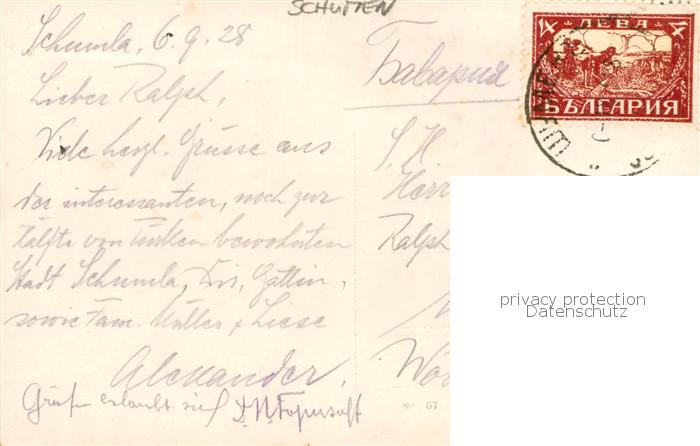 SCHUMEN
Schumla, 6.9.28
Lieber Ralph,
Viele herzl. Grüsse aus
der interessanten, noch zur
Hälfte von Türken bewohnten
Stadt Schumla, Dir, Gattin,
sowie Fam. Müller & Liese
Alexander.
erlaubt sich
Бавария
S. H.
Herr
Ralph
4 ЛЕВА 4
БЪЛГАРИЯ
privacy protection
Datenschutz
80 07